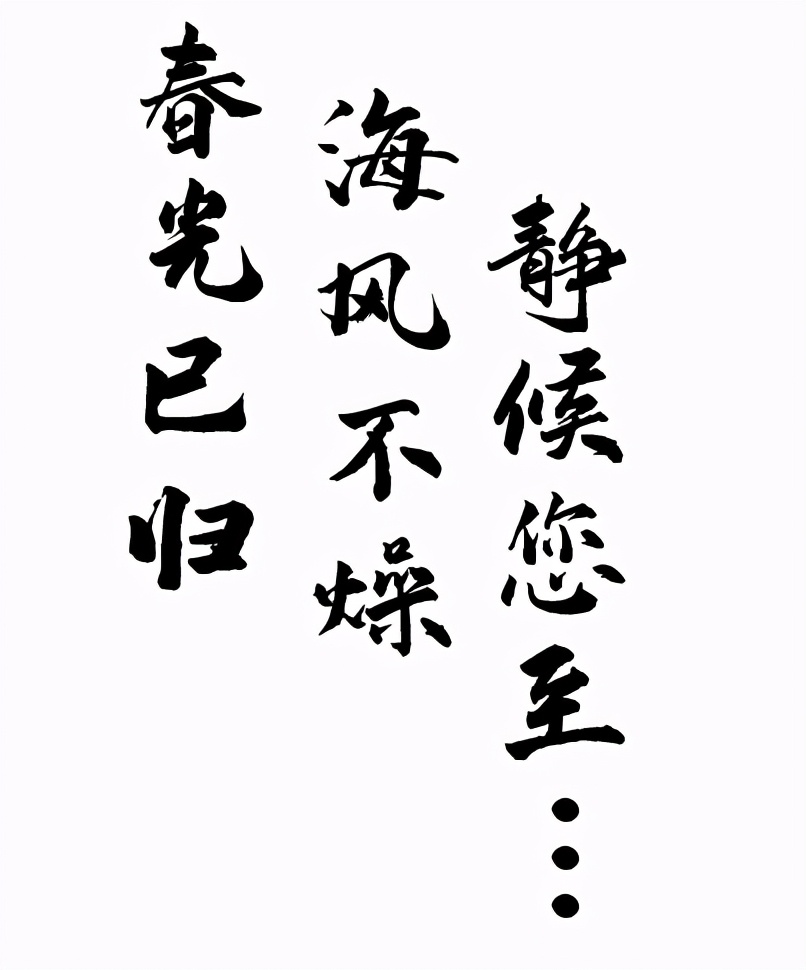 春光已归
海风不燥
静候您至…